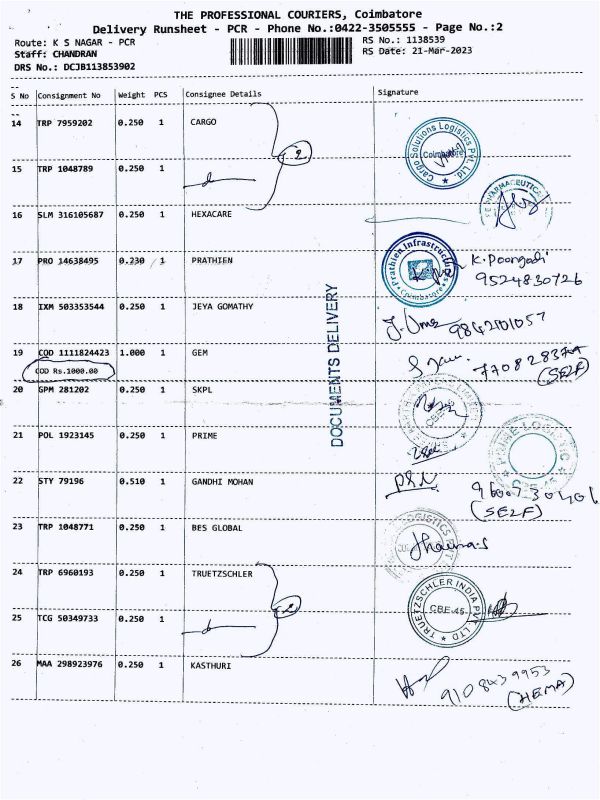 THE PROFESSIONAL COURIERS, Coimbatore
Delivery Runsheet - PCR - Phone No.:0422-3505555 - Page No.:2
Route: K S NAGAR - PCR
RS No.: 1138539
Staff: CHANDRAN
RS Date: 21-Mar-2023
DRS No.: DCJB113853902
S No Consignment No Weight PCS Consignee Details Signature
14 TRP 7959202 0.250 1 CARGO
2
Cargo Solutions Logistics Pvt. Ltd.
Coimbatore
15 TRP 1048789 0.250 1
16 SLM 316105687 0.250 1 HEXACARE
PHARMACEUTICAL
17 PRO 14638495 0.230 1 PRATHIEN
Prathien Infrastructure
Coimbatore
K. Poongodi
9524830726
18 IXM 503353544 0.250 1 JEYA GOMATHY
J. Uma 9842101057
DOCUMENTS DELIVERY
19 COD 1111824423 1.000 1 GEM
COD Rs.1000.00
(SELF)
20 GPM 281202 0.250 1 SKPL
21 POL 1923145 0.250 1 PRIME
PRIME LOGISTIC
CBE-45
22 STY 79196 0.510 1 GANDHI MOHAN
(SELF)
23 TRP 1048771 0.250 1 BES GLOBAL
LOGISTICS PVT
24 TRP 6960193 0.250 1 TRUETZSCHLER
2
TRUETZSCHLER INDIA PVT LTD
CBE-45
25 TCG 50349733 0.250 1
26 MAA 298923976 0.250 1 KASTHURI
9108439953
(HEMA)